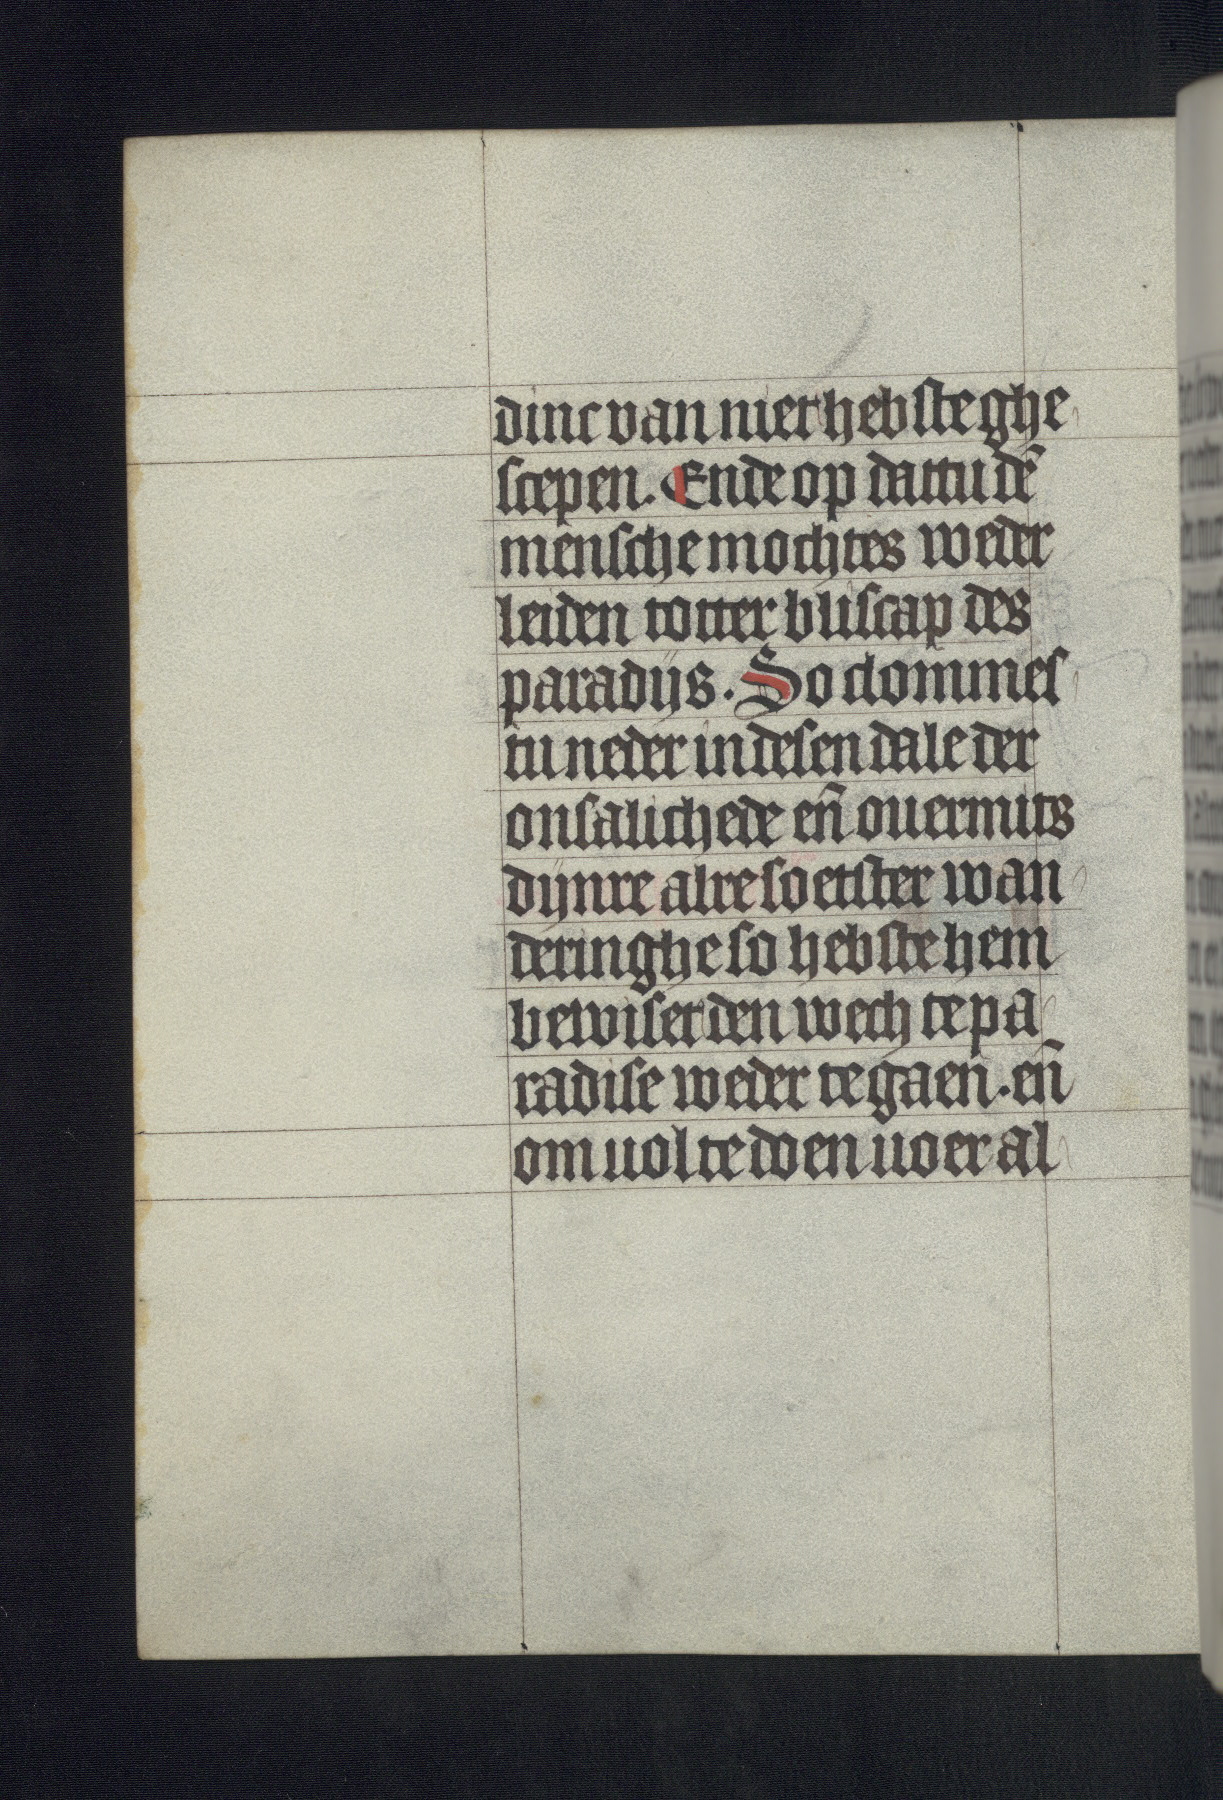 dinc van niet hebste ghe
scepen. Ende op dattu dē
mensche mochtes weder
leiden totter bliscap des
paradijs. So clommes
tu neder in desen dale der
onsalichede eñ ouermits
dijnre alre soetster wan
deringhe so hebste hem
bewiset den wech te pa
radise weder te gaen. eñ
om uol te doen uoer al